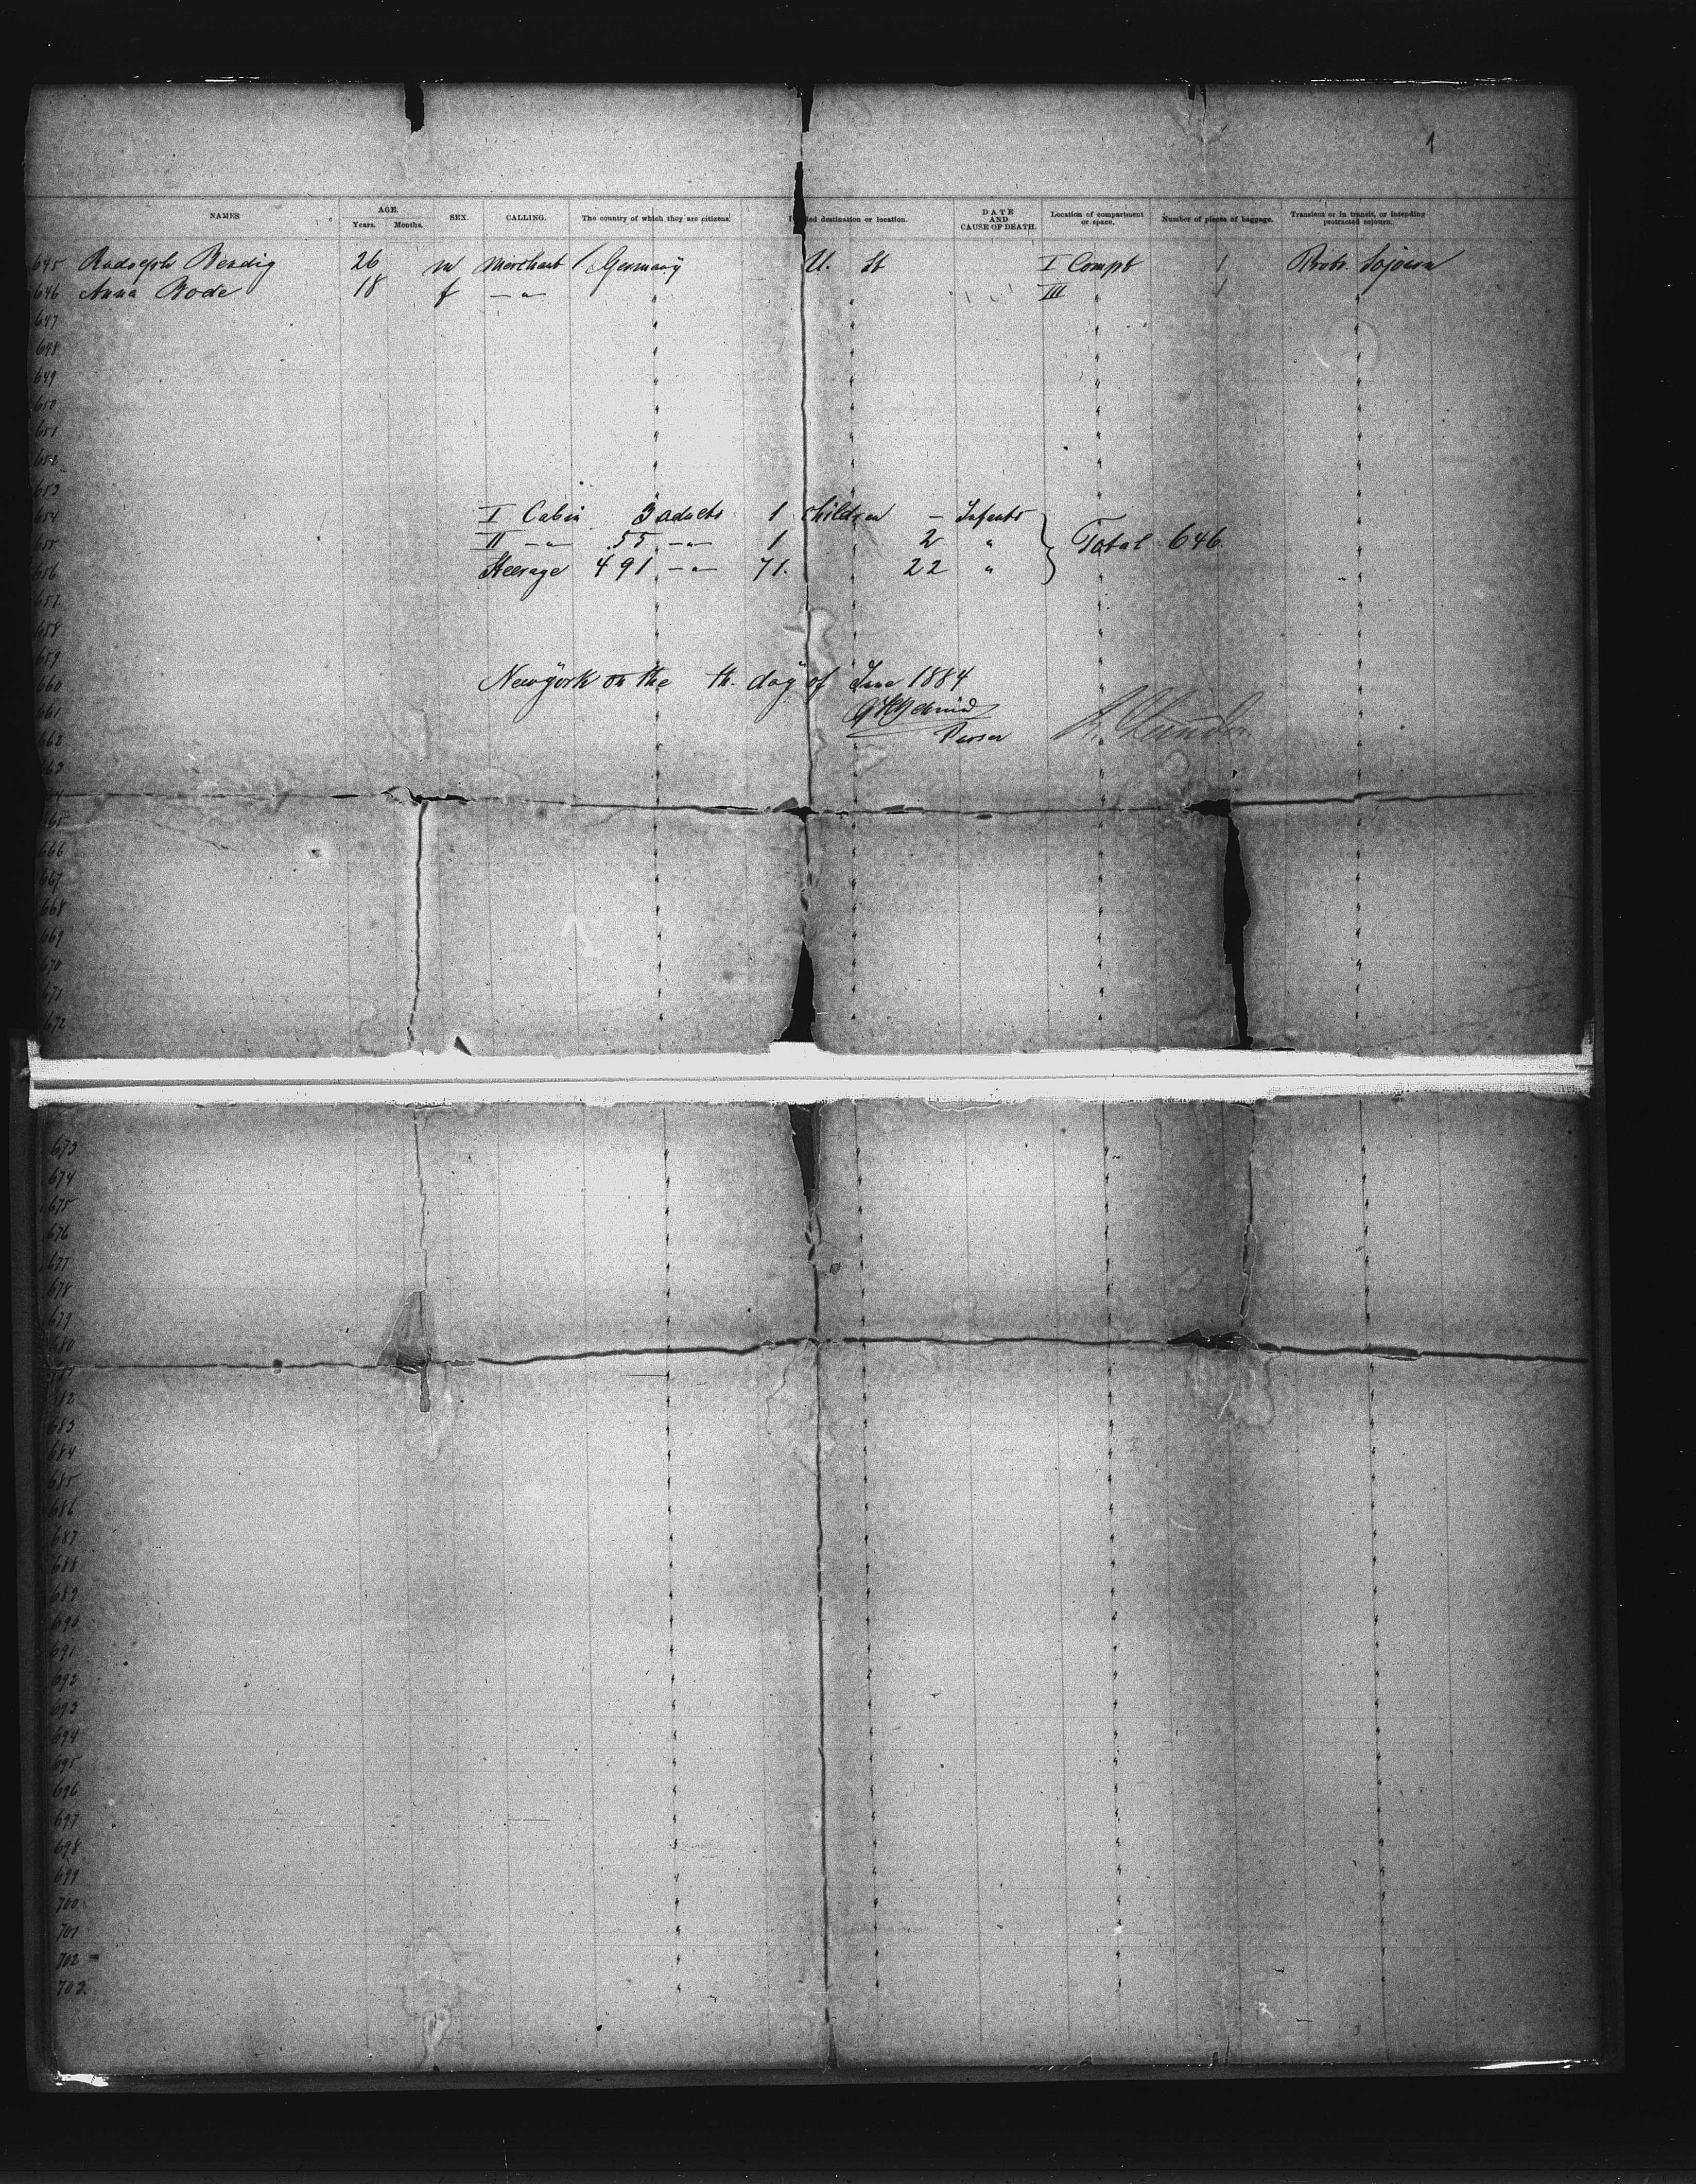 1
NAMES AGE. Years. Months. SEX. CALLING. The country of which they are citizens. ded destination or location. DATE AND CAUSE OF DEATH. Location of compartment or space. Number of pieces of baggage. Transient or in transit, or intending protracted sojourn.
645 Rudolph Bendig 26 m Merchant Germany U. St I Compt 1 Protr. Sojourn
646 Anna Bode 18 f —"— " " III " 1 "
647
648
649
650
651
652
653
654 I Cabin 3 adults 1 children — Infants
655 II —"— 55 —"— 1 2 " Total 646.
656 Steerage 491 —"— 71. 22 "
657
658
659
660 Newyork on the th. day of June 1884
661
662 Purser
663
665
666
667
668
669
670
671
672
673
674
675
676
677
678
679
680
682
683
684
685
686
687
688
689
690
691
692
693
694
695
696
697
698
699
700
701
702
703.